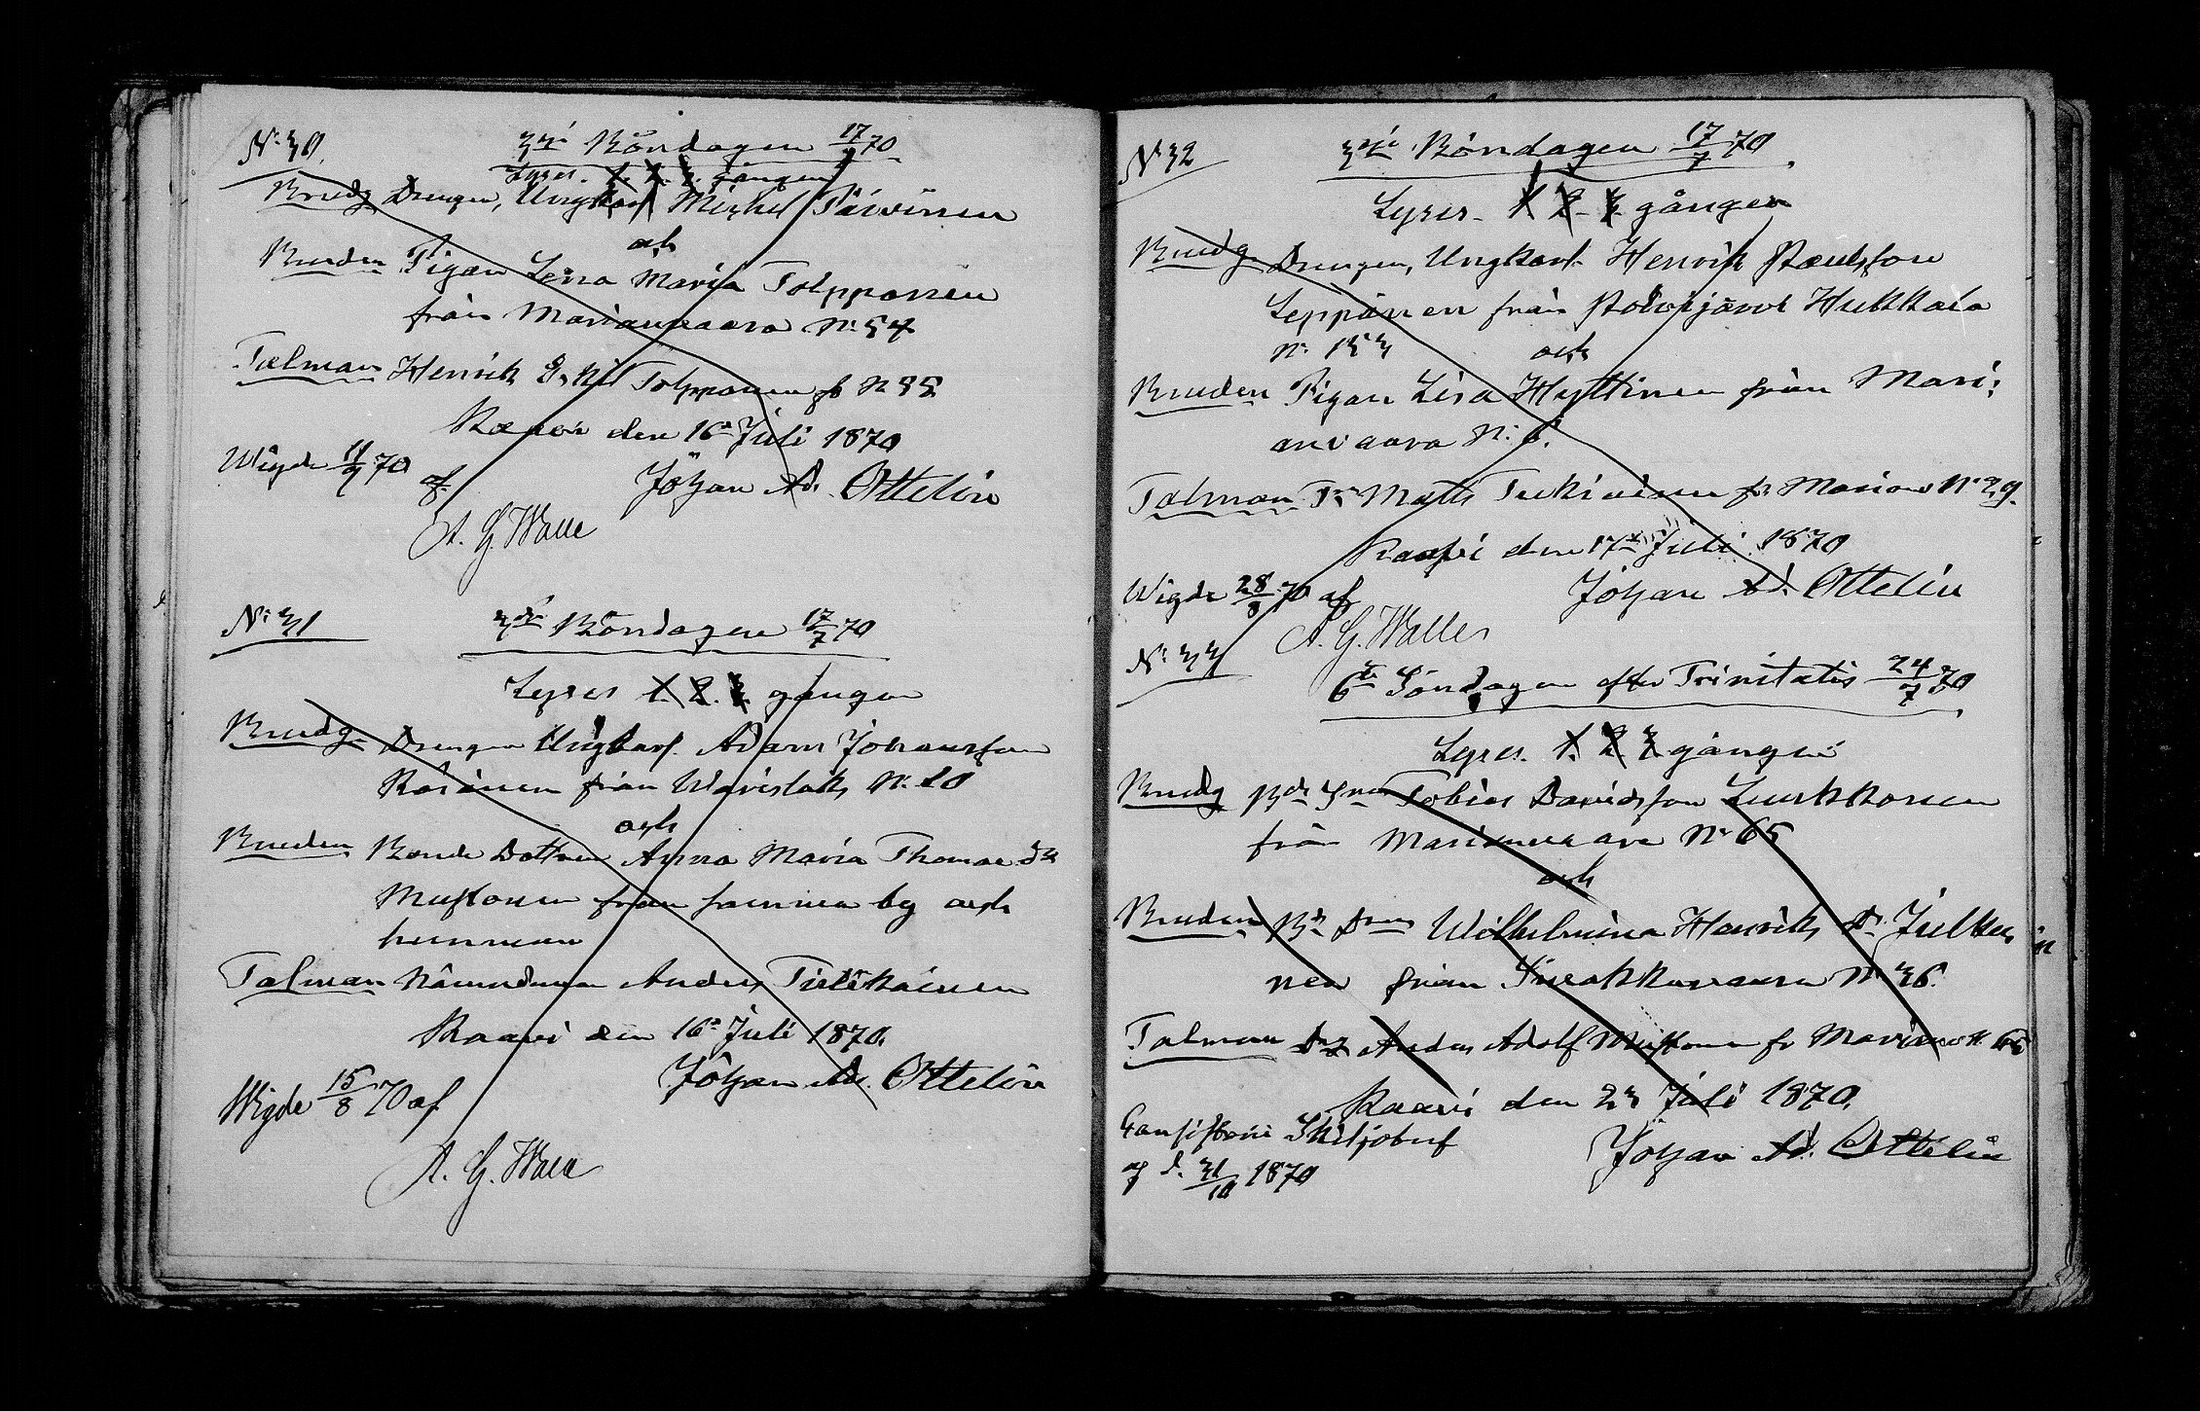 N:o 30. 3dje Böndagen 17/7 70
Lyses. 1. 2. 3. gången
Brudg Drengen, Ungkarl Michel Päivinen
och
Bruden Pigan Lena Maria Tolppanen
från Marianvaara N:o 54
Talman Henrik Tolppanen fr N 55
Kaavi den 16de Juli 1870
Wigde 11/9 70 Johan Ad. Ottelin
af
A. G. Walle
N:o 31 3dje Böndagen 17/7 70
Lyses 1. 2. 3. gången
Brudg. Drengen Ungkarl. Adam Johansson
Räsänen från Wavislaks N:o 20
och
Bruden Bonde Dottren Anna Maria Thomae dr
Mustonen från samma by och
hemman
Talman Nämndeman Anders Tirkkainen
Kaavi den 16de Juli 1870.
Johan Ad. Ottelin
Wigde 15/8 70 af
A. G. Walle
N:o 32 3dje Böndagen 17/7 70
Lyses. 1. 2. 3. gången
Brudg. Drengen, Ungkarl. Henrik Paulsson
Leppänen från Polvijärvi Hukkala
N:o 153 och
Bruden Pigan Lisa Hyttinen från Mari-
anvaara N:o 6.
Talman Matts Tukiainen fr. Marianv N:o 29.
Kaavi den 17de Juli 1870
Wigde 28/8 70 af Johan Ad. Ottelin
A. G. Walle
N:o 33
6te Söndagen efter Trinitatis 24/7 70
Lyses. 1. 2. 3. gången
Brudg Bde Snen Tobias Davidsson Luukkonen
från Marianvaara N:o 65
och
Bruden Bde Dren Wilhelmina Henriks dr Julku
nen från Surakkavaara N:o 36.
Talman Drg Anders Adolf Mustonen fr Marianv N. 65
Kaavi den 23 Juli 1870.
Consistorii Skiljobref Johan Ad. Ottelin
af d. 31/10 1870